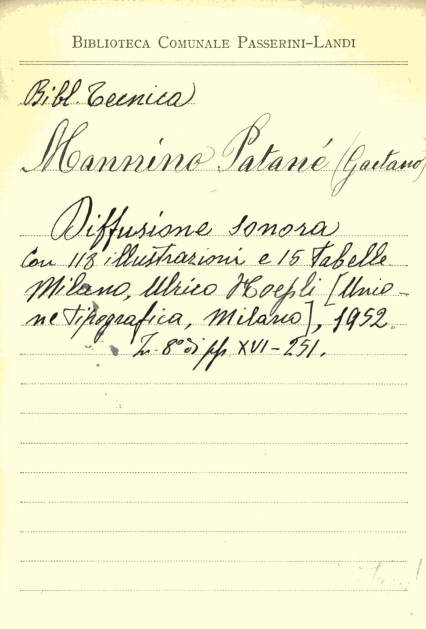 BIBLIOTECA COMUNALE PASSERINI-LANDI
Bibl. Tecnica
Mannino Patanè (Gaetano)
Diffusione sonora
Con 113 illustrazioni e 15 Tabelle
Milano, Ulrico Hoepli [Unio-
ne Tipografica, Milano], 1952.
In-8° di pp. XVI-251.